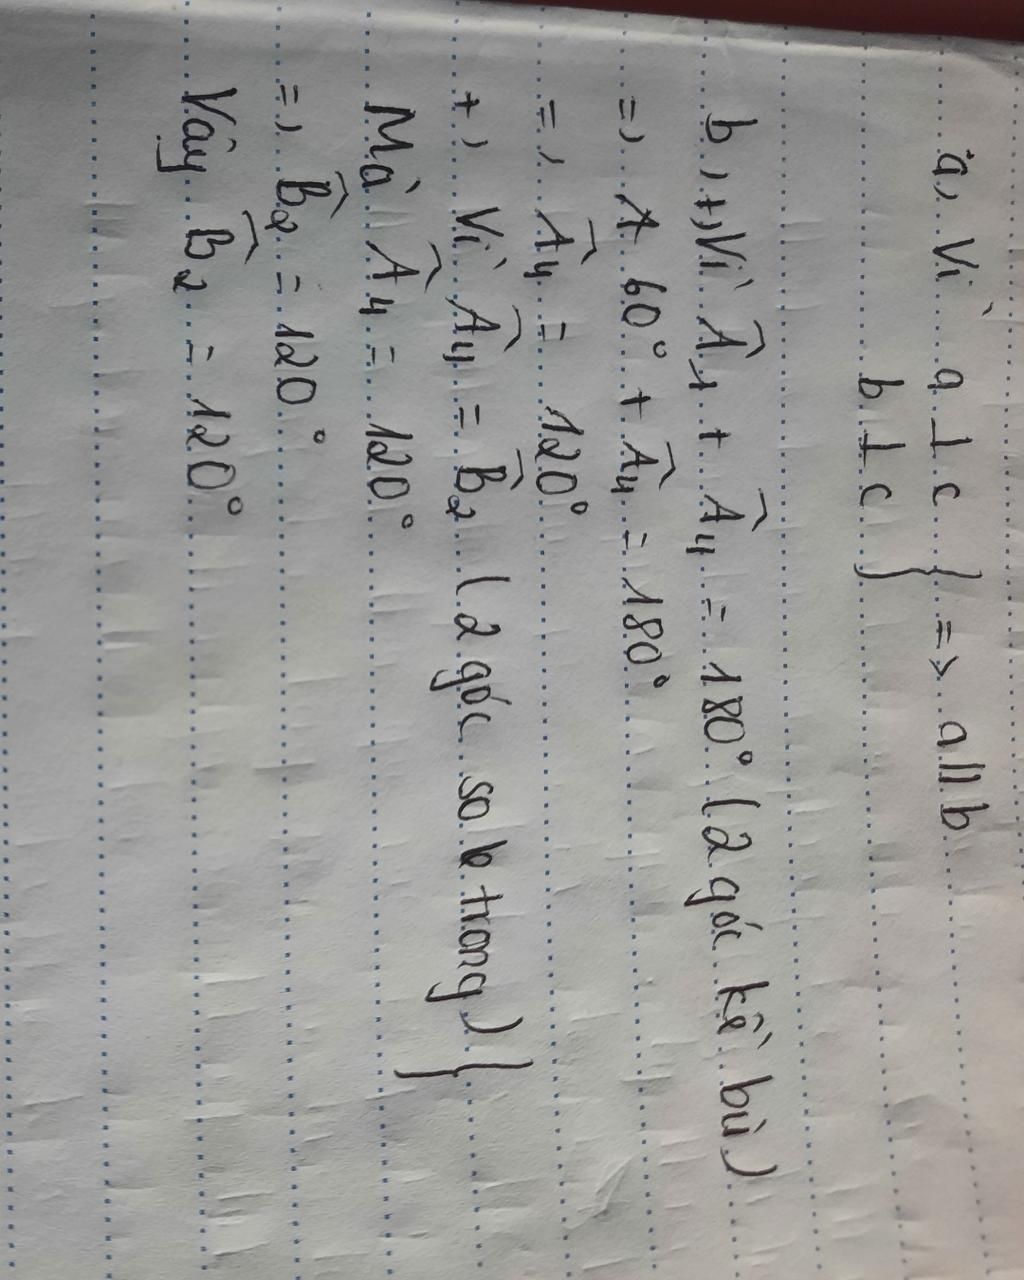 a, Vì a ⊥ c } => a // b
b ⊥ c
b, +, Vì Â₁ + Â₄ = 180° (2 góc kề bù)
=> 60° + Â₄ = 180°
=> Â₄ = 120°
+, Vì Â₄ = B̂₂ (2 góc so le trong) }
Mà Â₄ = 120°
=> B̂₂ = 120°
Vậy B̂₂ = 120°